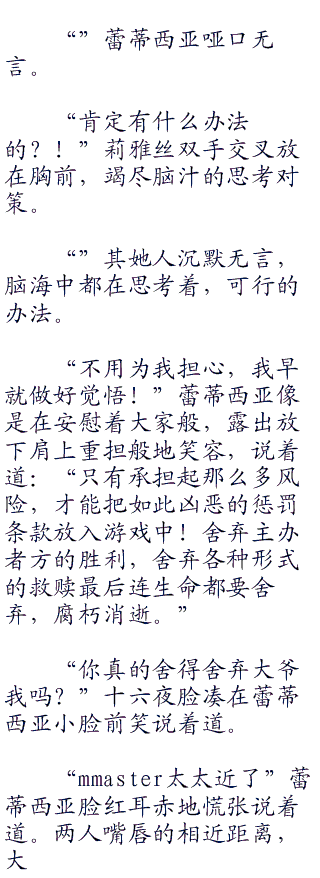 “”蕾蒂西亚哑口无
言。
“肯定有什么办法
的？！”莉雅丝双手交叉放
在胸前，竭尽脑汁的思考对
策。
“”其她人沉默无言，
脑海中都在思考着，可行的
办法。
“不用为我担心，我早
就做好觉悟！”蕾蒂西亚像
是在安慰着大家般，露出放
下肩上重担般地笑容，说着
道：“只有承担起那么多风
险，才能把如此凶恶的惩罚
条款放入游戏中！舍弃主办
者方的胜利，舍弃各种形式
的救赎最后连生命都要舍
弃，腐朽消逝。”
“你真的舍得舍弃大爷
我吗？”十六夜脸凑在蕾蒂
西亚小脸前笑说着道。
“mmaster太太近了”蕾
蒂西亚脸红耳赤地慌张说着
道。两人嘴唇的相近距离，
大